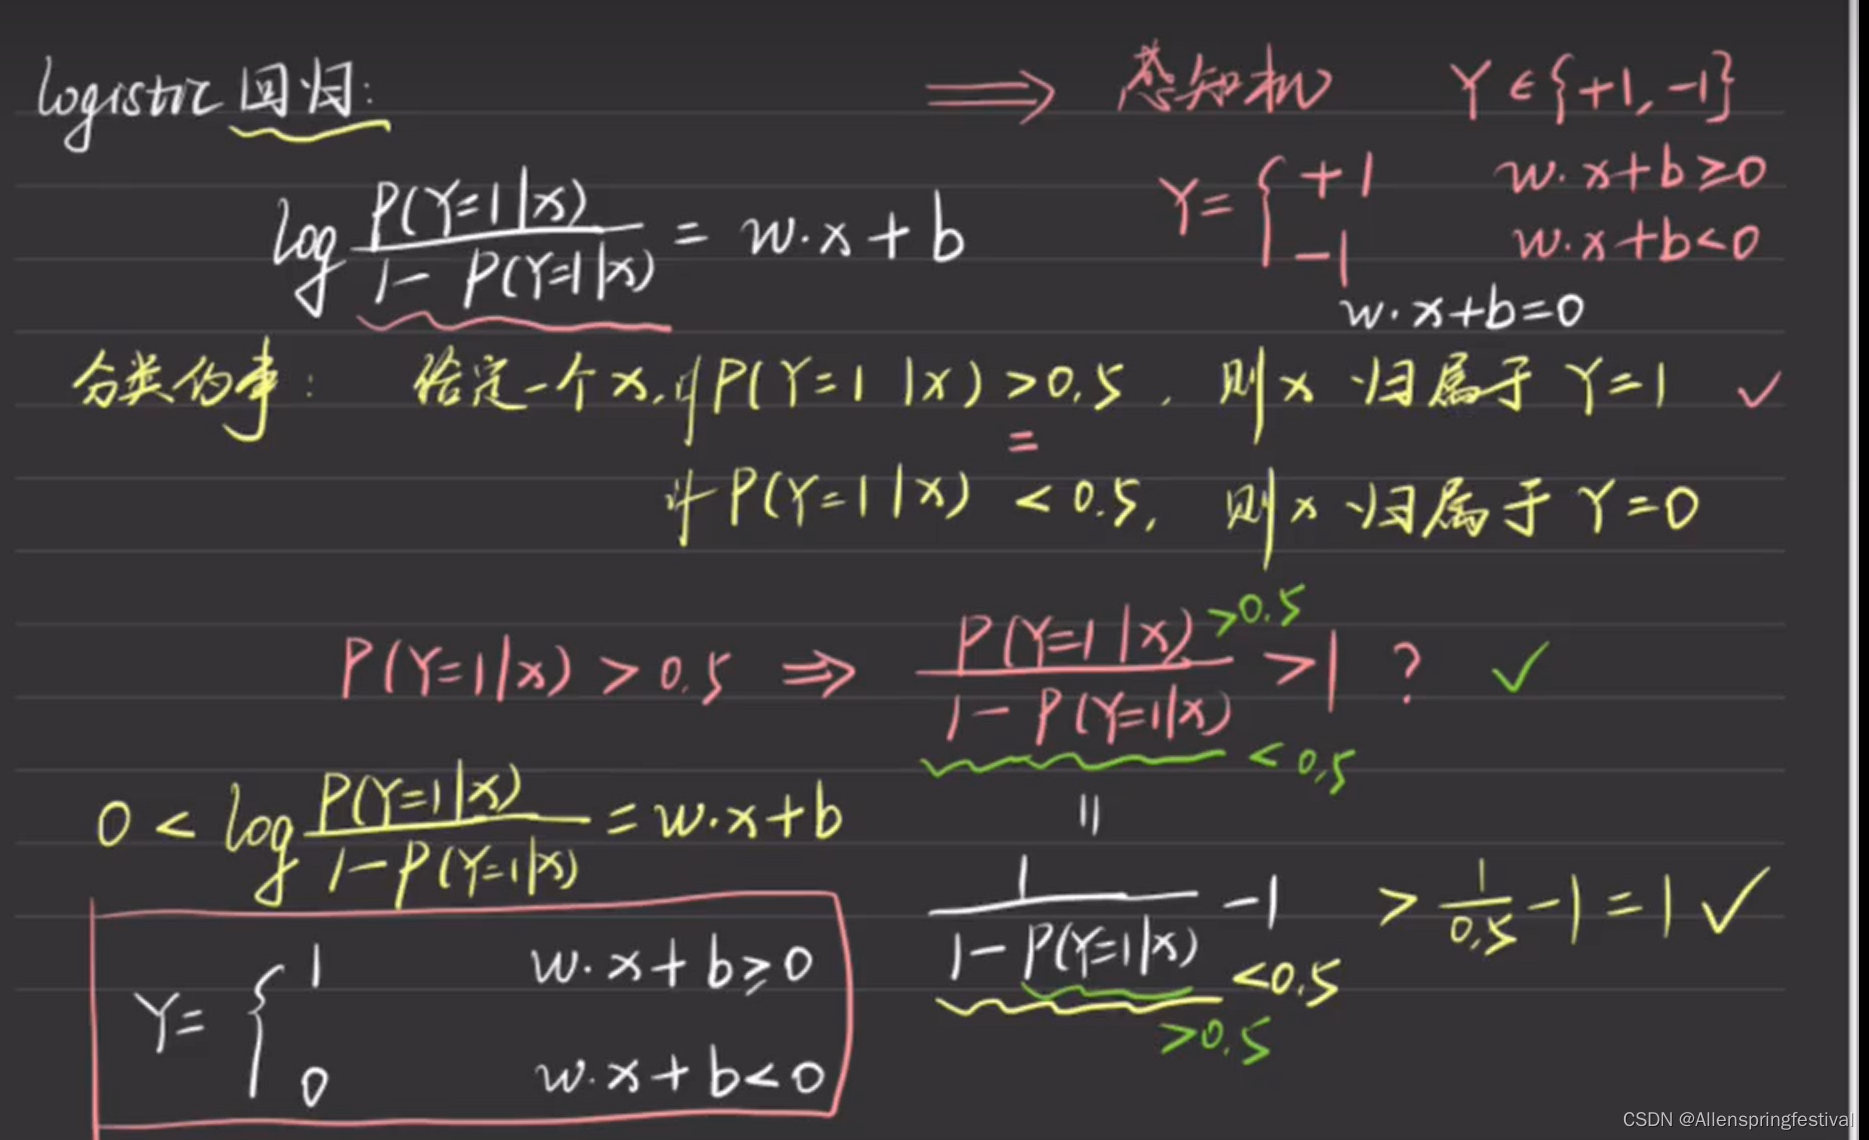 logistic 回归: ⟹ 感知机 Y∈{+1, -1}
Y= { +1 w·x+b≥0
-1 w·x+b<0
log P(Y=1|x) / 1-P(Y=1|x) = w·x+b
w·x+b=0
分类约束: 给定一个x, 若P(Y=1|x)>0.5, 则x归属于Y=1 ✓
=
若P(Y=1|x)<0.5, 则x归属于Y=0
P(Y=1|x)>0.5 ⇒ P(Y=1|x) >0.5 / 1-P(Y=1|x) <0.5 >1 ? ✓
0 < log P(Y=1|x) / 1-P(Y=1|x) = w·x+b
=
1 / 1-P(Y=1|x) -1 > 1/0.5 -1=1 ✓
<0.5
>0.5
Y= { 1 w·x+b≥0
0 w·x+b<0
CSDN @Allenspringfestival